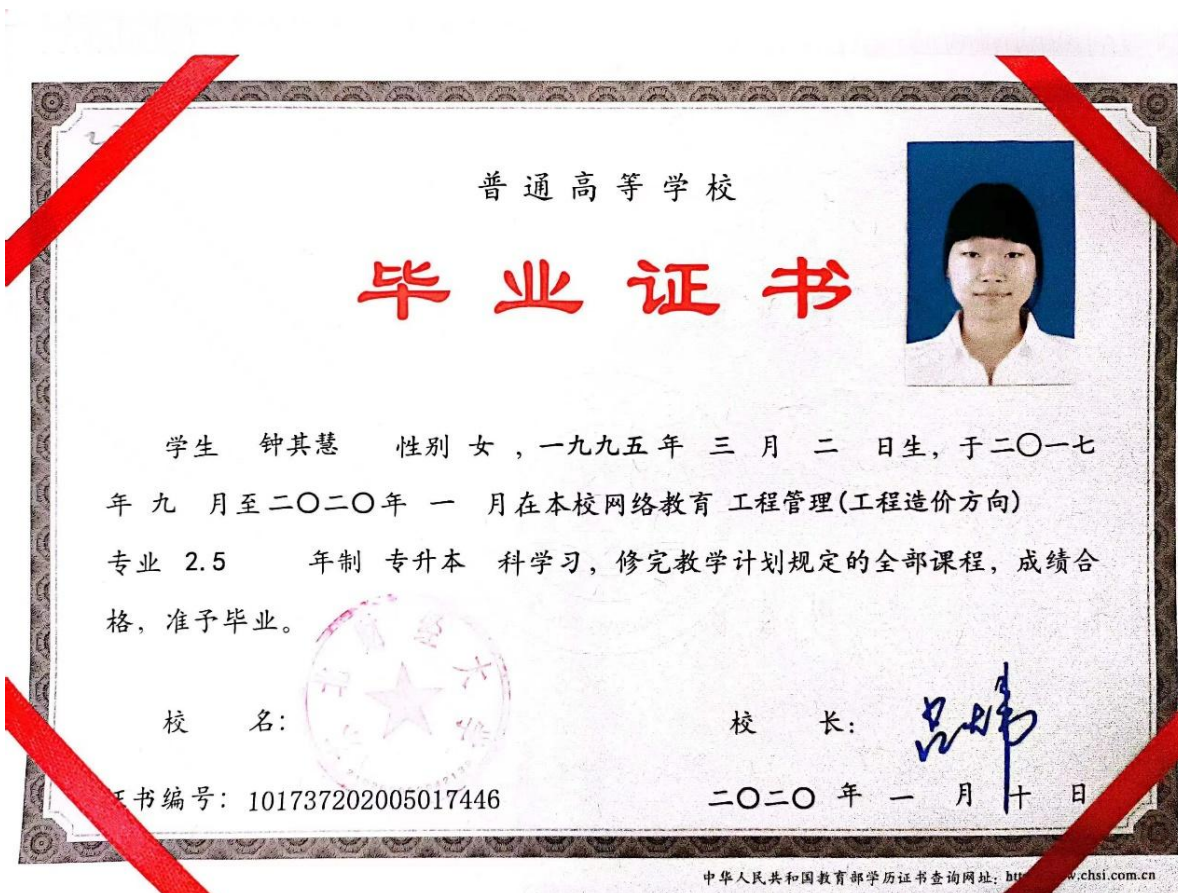 普通高等学校
毕业证书
学生 钟其慧 性别 女 ，一九九五 年 三 月 二 日生，于二〇一七
年 九 月至二〇二〇年 一 月在本校网络教育 工程管理(工程造价方向)
专业 2.5 年制 专升本 科学习，修完教学计划规定的全部课程，成绩合
格，准予毕业。
校 名：
校 长：
书编号：101737202005017446
二〇二〇 年 一 月 十 日
中华人民共和国教育部学历证书查询网址：
.chsi.com.cn